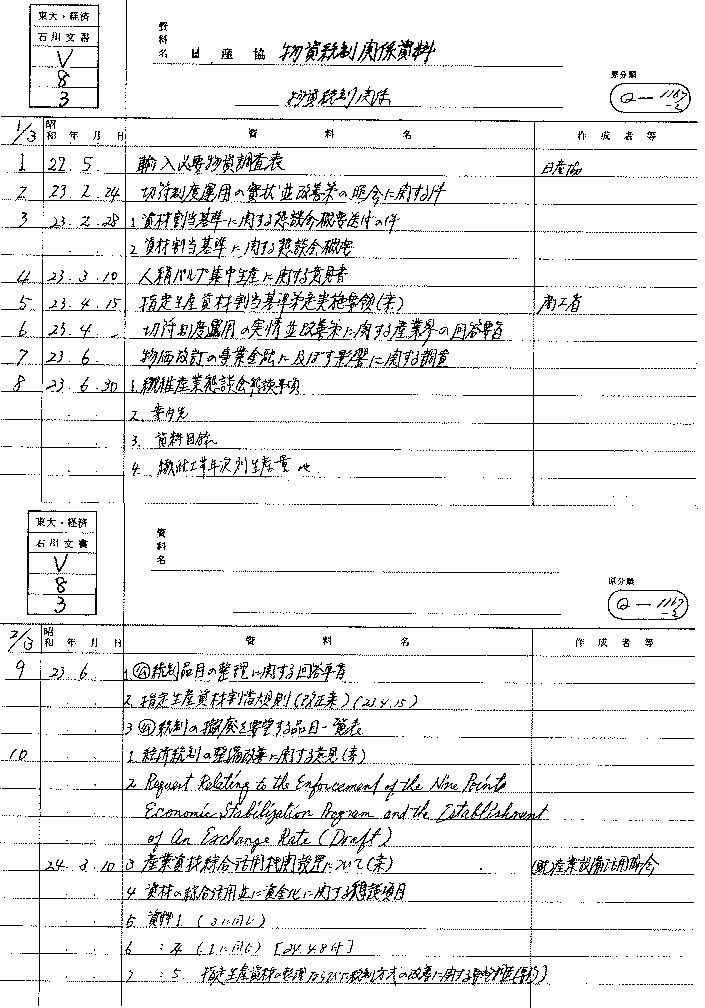 東大・経済
石川文書
V
8
3
資料名 日産協 物資統制関係資料
物資統制関係
原分類
Q-1167-2
1/3 昭和 年 月 日 資料名 作成者等
1 22.5 輸入必要物資調査表 日産協
2 23.2.24 切符制度運用の実状並改善策の照会に関する件
3 23.2.28 1.資材割当基準に関する懇談会概要送付の件
2.資材割当基準に関する懇談会概要
4 23.3.10 人絹パルプ集中生産に関する意見書
5 23.4.15 指定生産資材割当基準策定実施要領(案) 商工省
6 23.4. 切符制度運用の実情並改善策に関する産業界の回答要旨
7 23.6 物価改訂の事業金融に及ぼす影響に関する調査
8 23.6.30 1.繊維産業懇談会
2.案内先
3.資料目録
4.繊維工業年次別生産量 他
東大・経済
石川文書
V
8
3
資料名
原分類
Q-1167-2
2/3 昭和 年 月 日 資料名 作成者等
9 23.6 1. 統制品目の整理に関する回答要旨
2.指定生産資材割当規則(改正案)(23.4.15)
3 統制の撤廃を要望する品目一覧表
10 1.経済統制の整備改善に関する意見(案)
2 Request Relating to the Enforcement of the Nine Points
Economic Stabilization Program and the Establishment
of An Exchange Rate (Draft)
24.3.10 3 産業資材綜合活用機関設置について(案) 産業設備活用協会
4 資材の綜合活用並に資金化に関する懇談項目
5 資料1 (3に同じ)
6 : 4 (1に同じ) [24.4.8付]
7 : 5 指定生産資材の整理ならびに統制方式の改善に関する